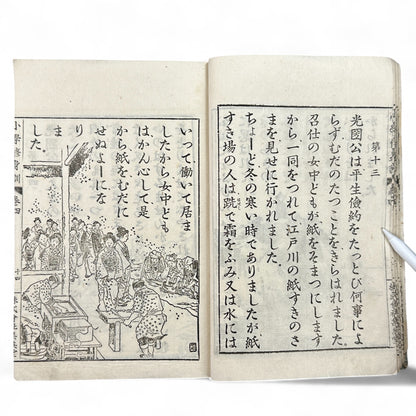 第十三
光圀公は平生儉約をたつとび何事によ
らずむだのたつことをきらはれました
召仕の女中どもが紙をそまつにします
から一同をつれて江戸川の紙すきのさ
まを見せに行かれました
ちよーど冬の寒い時でありましたが紙
すき場の人は跣で霜をふみ又は水には
いつて働いて居ま
したから女中ども
はかん心して是
から紙をむだに
せぬよーにな
りま
した